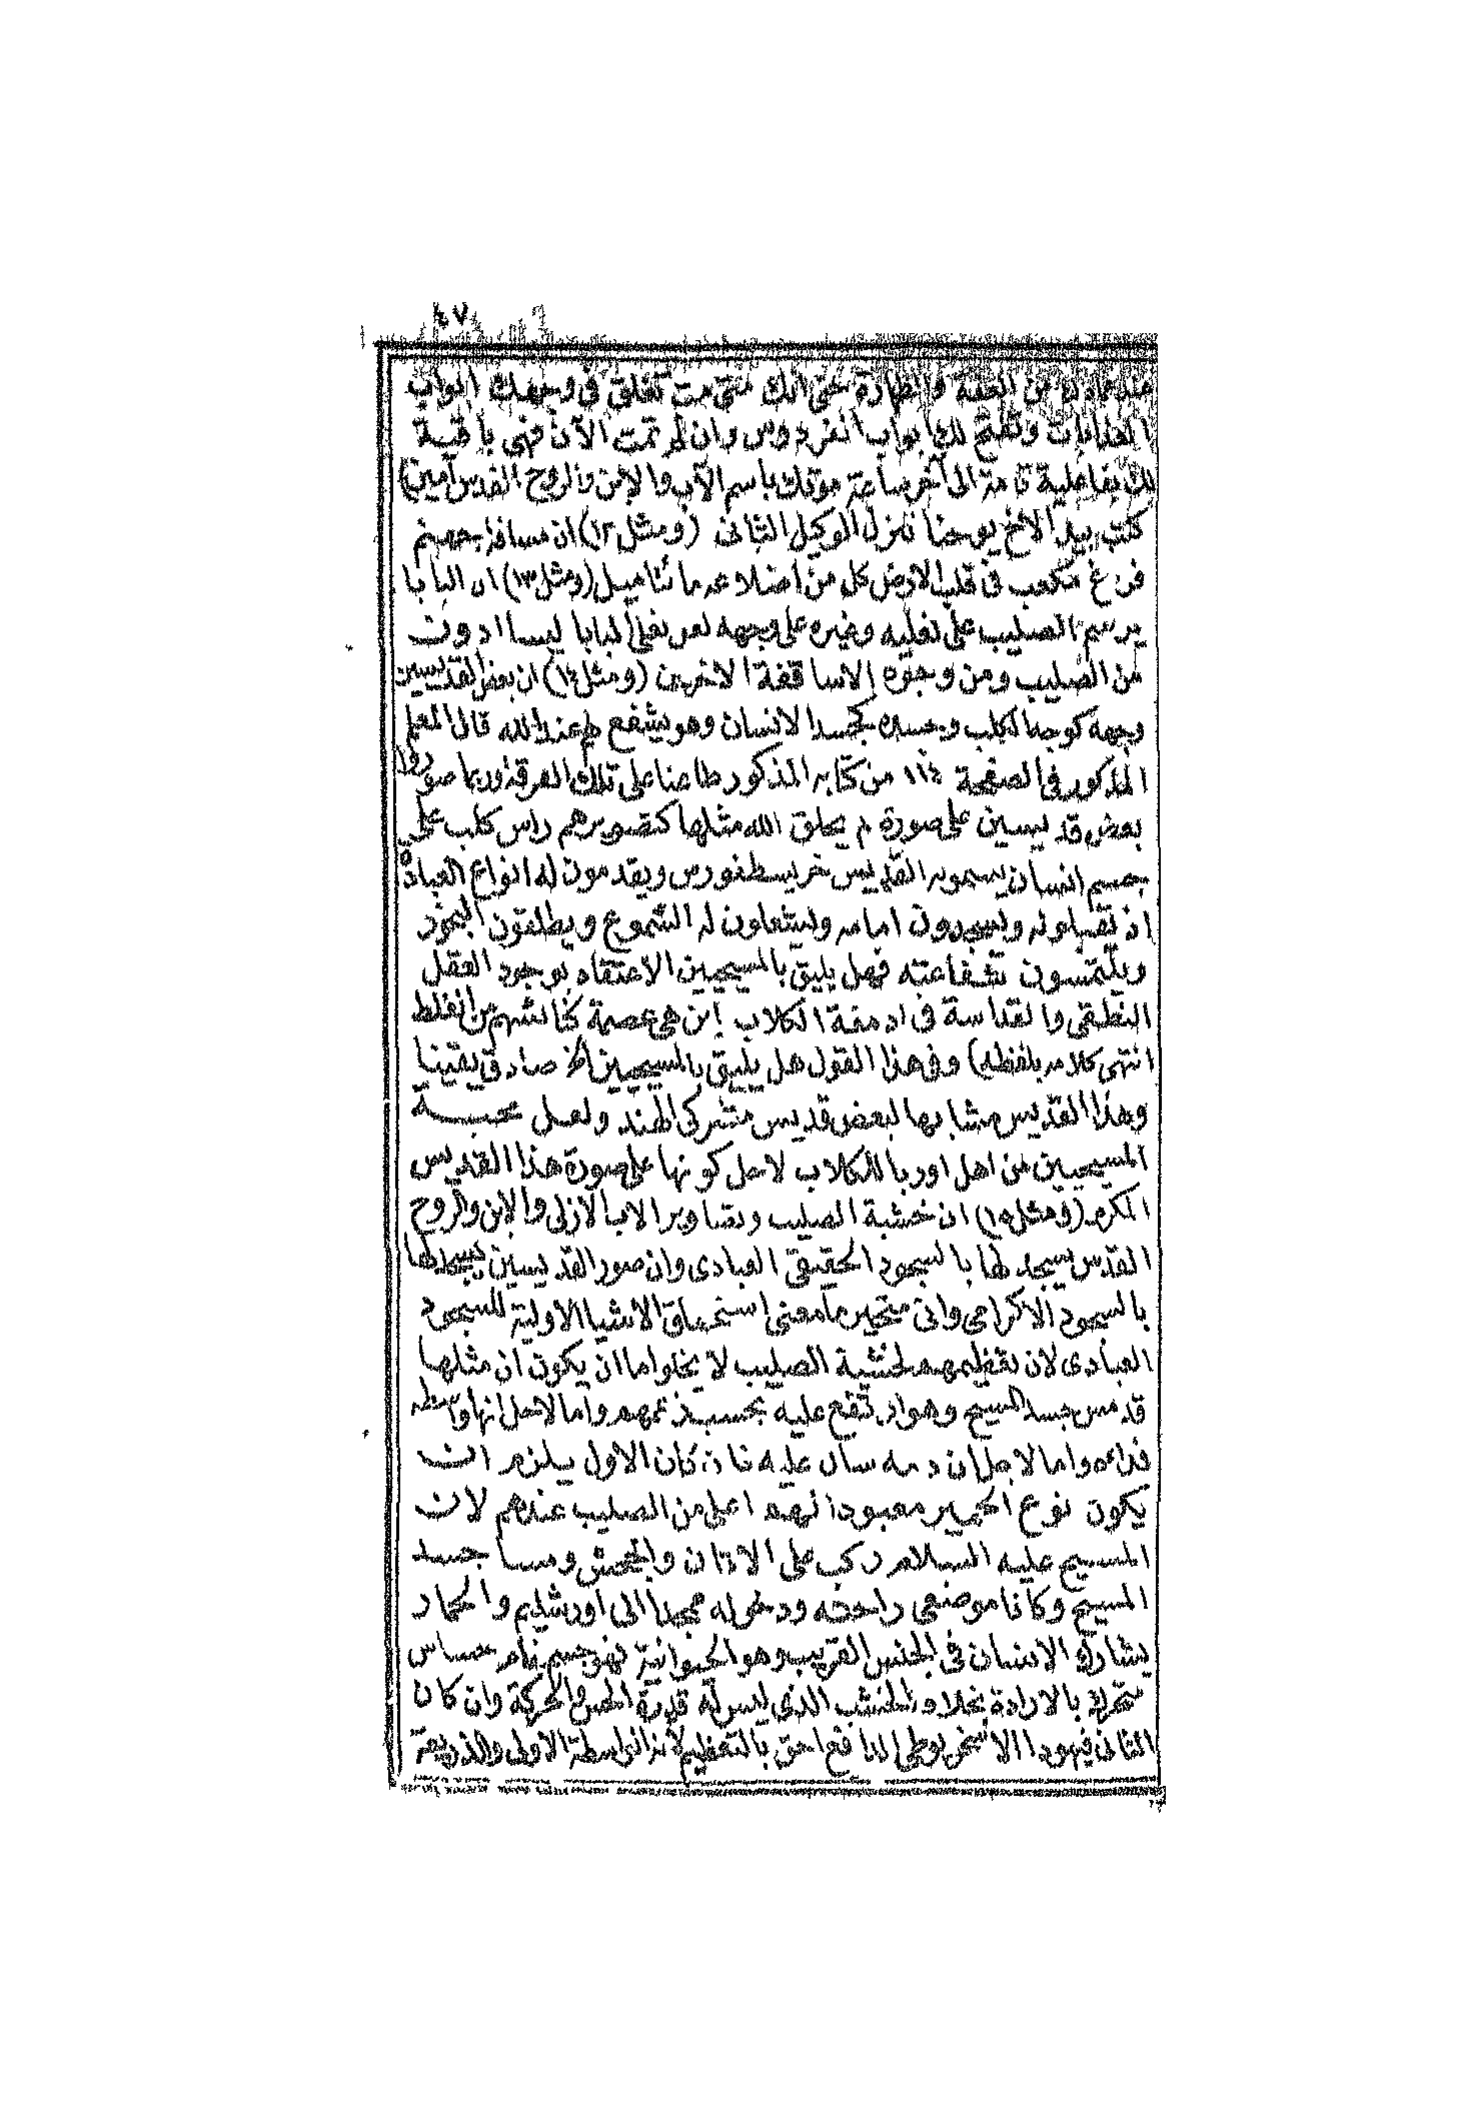 ٤٧
عماده من العفة والطهارة حتى انك متى مت تغلق فى وجهك ابواب
العذابات وتفتح لك ابواب الفردوس وان لم تمت الآن فهى باقية
لك بفاعلية تامة الى آخر ساعة موتك باسم الآب والابن والروح القدس آمين)
كتب بيد الاخ يوحنا تنزل الوكيل الثانى (ومثل ١٢) ان مسافة جهنم
فرغ مكعب فى قلب الارض كل من اضلاعه مائتا ميل (ومثل ١٣) ان البابا
يرسم الصليب على نعليه وغيره على وجهه لعل نعلى البابا ليسا ادون
من الصليب ومن وجوه الاساقفة الاخرين (ومثل ١٤) ان بعض القديسين
وجهه كوجه الكلب وجسده كجسد الانسان وهو يشفع لهم عند الله قال المعلم
المذكور فى الصفحة ١١٤ من كتابه المذكور طاعنا على تلك الفرقة وربما صوروا
بعض قديسين على صورة لم يخلق الله مثلها كتصويرهم راس كلب على
جسم انسان يسمونه القديس خريسطفورس ويقدمون له انواع العبادة
اذ يقبلونه ويسجدون امامه ويشعلون له الشموع ويطلقون البخور
ويلتمسون شفاعته فهل يليق بالمسيحيين الاعتقاد بوجود العقل
النطقى والقداسة فى ادمغة الكلاب اين هى عصمة كنائسهم من الغلط
انتهى كلامه بلفظه) وفى هذا القول هل يليق بالمسيحيين الخ صادق يقينا
وهذا القديس مشابها لبعض قديس مشركى الهند ولعل محبة
المسيحيين من اهل اوربا للكلاب لاجل كونها على صورة هذا القديس
المكرم (ومثل ١٥) ان خشبة الصليب وتصاوير الاب الازلى والابن والروح
القدس يسجد لها بالسجود الحقيقى العبادى وان صور القديسين يسجد لها
بالسجود الاكرامى وانى متحير ما معنى استحقاق الاشيا الاولية للسجود
العبادى لان تعظيمهم لخشبة الصليب لا يخلوا ما ان يكون ان مثلها
قد مس جسد المسيح وهو ارتفع عليه بحسب زعمهم واما لاجل انها واسطة
فداءه واما لاجل ان دمه سال عليه فان كان الاول يلزم ان
يكون نوع الحمير معبودا لهم اعلى من الصليب عندهم لان
المسيح عليه السلام ركب على الاتان والجحش ومسا جسد
المسيح وكانا موضعى راحته ودخوله ممجدا الى اورشليم والحمار
يشارك الانسان فى الجنس القريب وهو الحيوانية فهو جسم نام حساس
متحرك بالارادة بخلاف الخشب الذى ليس له قدرة الحس والحركة وان كان
الثانى فيهودا الاسخريوطى الدافع احق بالتعظيم لانه الواسطة الاولى والذريعة